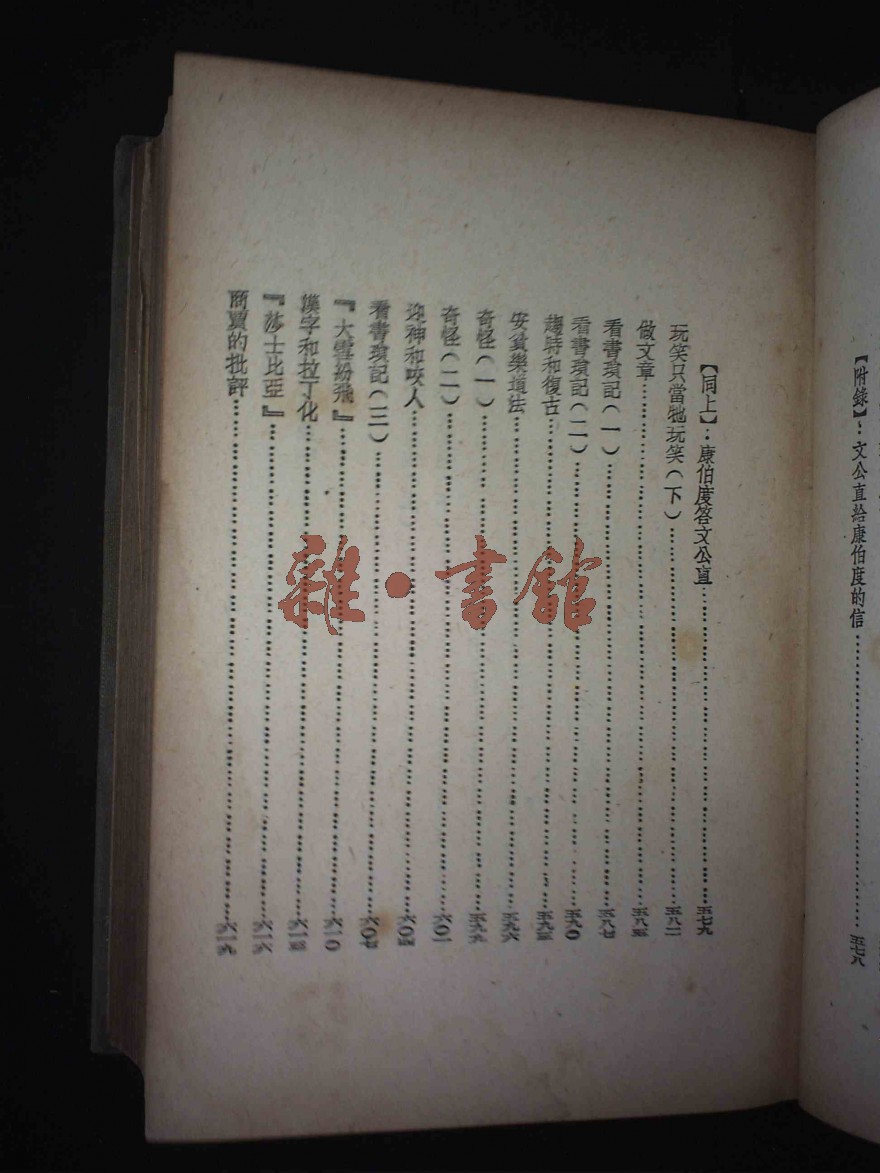 【附錄】:文公直給康伯度的信……五七八
【同上】:康伯度答文公直……五七九
玩笑只當牠玩笑(下)……五八二
做文章……五八五
看書瑣記(一)……五八七
看書瑣記(二)……五九〇
趨時和復古……五九三
安貧樂道法……五九六
奇怪(一)……五九九
奇怪(二)……六〇二
迎神和咬人……六〇四
看書瑣記(三)……六〇七
『大雪紛飛』……六一〇
漢字和拉丁化……六一三
『莎士比亞』……六一六
商賈的批評……六一九
雜·書館